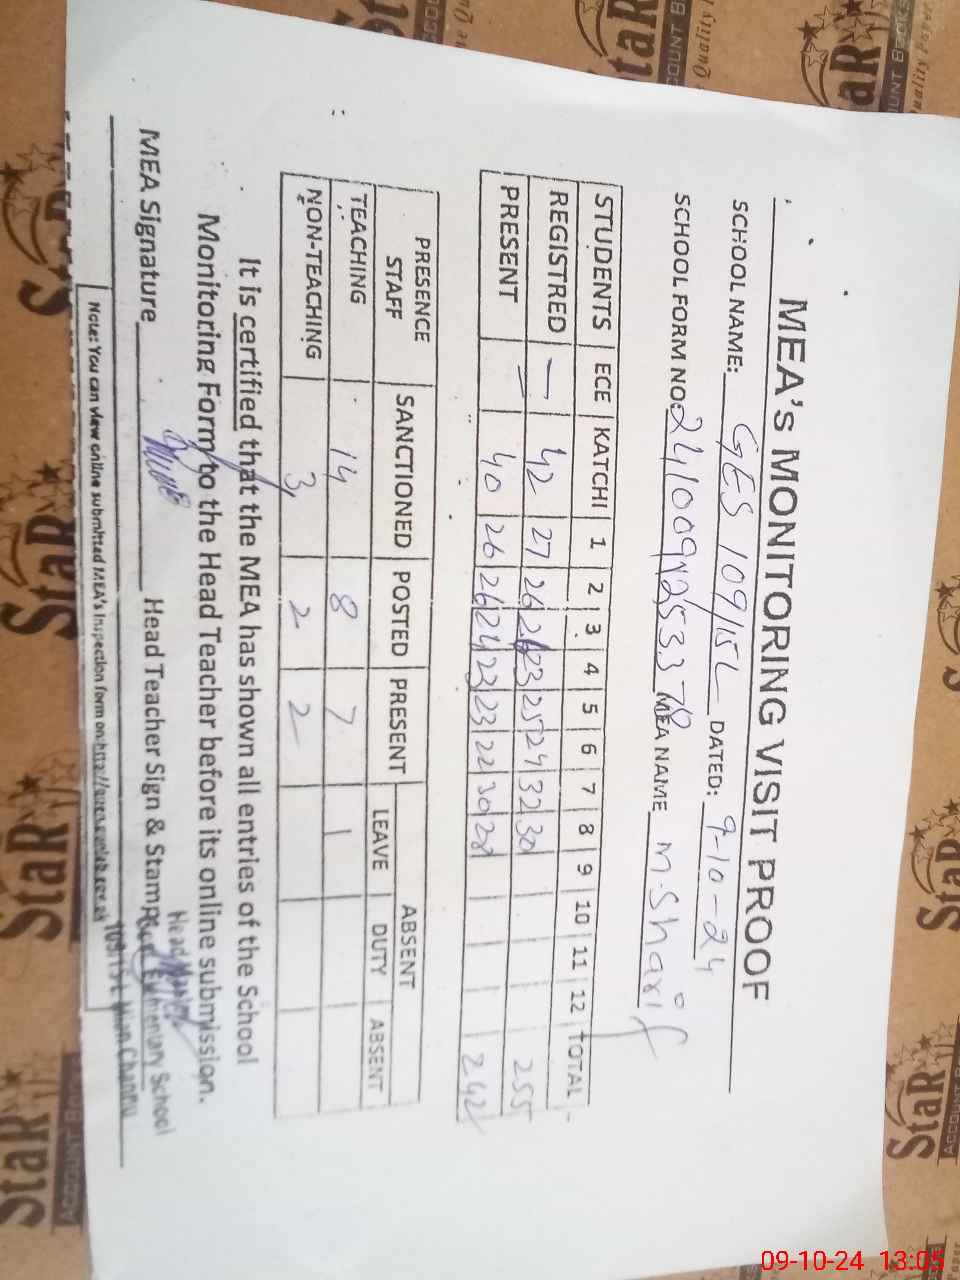 MEA's MONITORING VISIT PROOF
SCHOOL NAME: GES 109/15L DATED: 9-10-24
SCHOOL FORM NO: MEA NAME M. Sharif
STUDENTS ECE KATCHI 1 2 3 4 5 6 7 8 9 10 11 12 TOTAL
REGISTRED — 42 27 26 26 23 25 24 32 30 255
PRESENT — 40 26 26 24 23 23 22 30 28 242
PRESENCE ABSENT
STAFF SANCTIONED POSTED PRESENT LEAVE DUTY ABSENT
TEACHING 14 8 7 1
NON-TEACHING 3 2 2
It is certified that the MEA has shown all entries of the School
Monitoring Form to the Head Teacher before its online submission.
MEA Signature Head Teacher Sign & Stamp
Head Master
Govt. Elementary School
109/15-L Mian Channu
Note: You can view online submitted MEA's Inspection form on:
StaR
ACCOUNT BOOKS
09-10-24 13:05